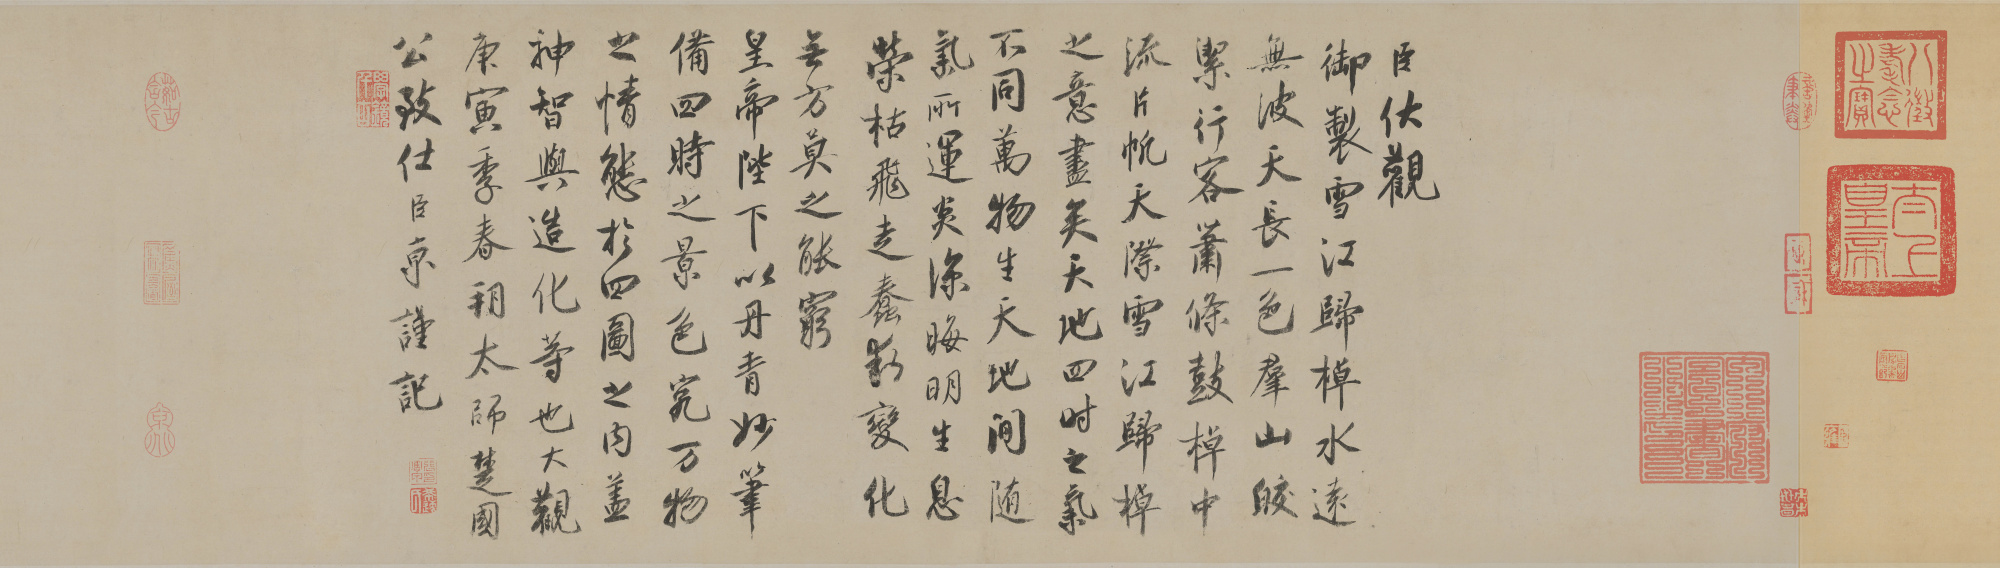 臣伏觀
御製雪江歸棹水遠
無波天長一色羣山皎
潔行客蕭條鼓棹中
流片帆天際雪江歸棹
之意盡矣天地四時之氣
不同萬物生天地間随
氣所運炎涼晦明生息
榮枯飛走蠢動變化
無方莫之能窮
皇帝陛下以丹青妙筆
備四時之景色究万物
之情態於四圖之内盖
神智與造化等也大觀
庚寅季春朔太師楚國
公致仕臣京謹記
八徵耄念之寶
太上皇帝